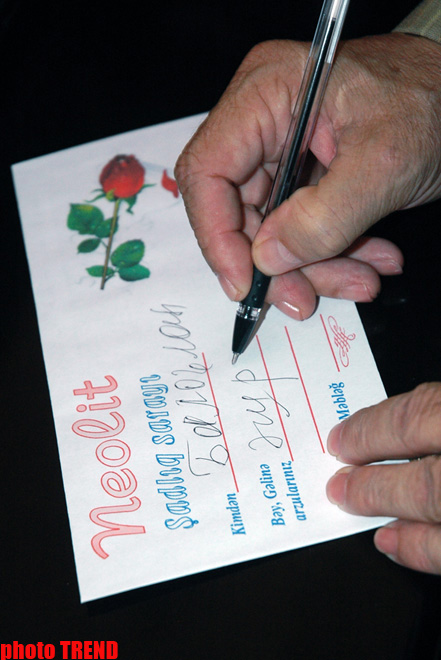 Neolit
Şadlıq sarayı
Kimdən Балоғлан
Bəy, Gəlinə
arzularınız
Məbləğ
photo TREND